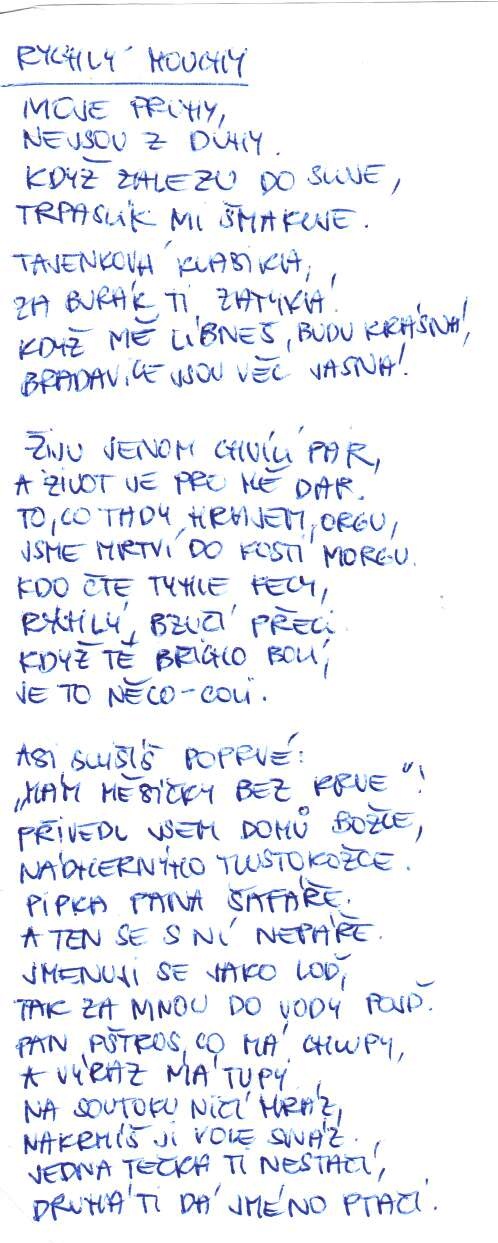 RYCHLÝ MOUCHY
MOJE PRUHY,
NEJSOU Z DUHY.
KDYŽ ZALEZU DO SLUJE,
TRPASLÍK MI ŠMAKUJE.
TAJENKOVÁ KLASIKA,
ZA BURÁK TI ZATYKÁ.
KDYŽ MĚ LÍBNEŠ, BUDU KRÁSNÁ,
BRADAVICE JSOU VĚC JASNÁ!
ŽIJU JENOM CHVÍLÍ PÁR,
A ŽIVOT JE PRO MĚ DAR.
TO, CO TADY HRAJEM, ORGU,
JSME MRTVÍ DO KOSTÍ MORGU.
KDO ČTE TYHLE KECY,
RYCHLÝ, BZUČÍ PŘECI.
KDYŽ TĚ BŘICHO BOLÍ,
JE TO NĚCO-COLI.
ASI SLYŠÍŠ POPRVÉ:
„MÁM MĚSÍČKY BEZ KRVE"!
PŘIVEDL JSEM DOMŮ BOŽCE,
NÁDHERNÝHO TLUSTOKOŽCE.
PIPKA PANA ŠAFÁŘE.
A TEN SE S NÍ NEPÁŘE.
JMENUJI SE JAKO LOĎ,
TAK ZA MNOU DO VODY POJĎ.
PAN PŠTROS, CO MÁ CHLUPY,
A VÝRAZ MÁ TUPÝ.
NA SOUTOKU NIČÍ HRÁZ,
NAKRMÍŠ JI VOLE SNÁZ.
JEDNA TEČKA TI NESTAČÍ,
DRUHÁ TI DÁ JMÉNO PTAČÍ.